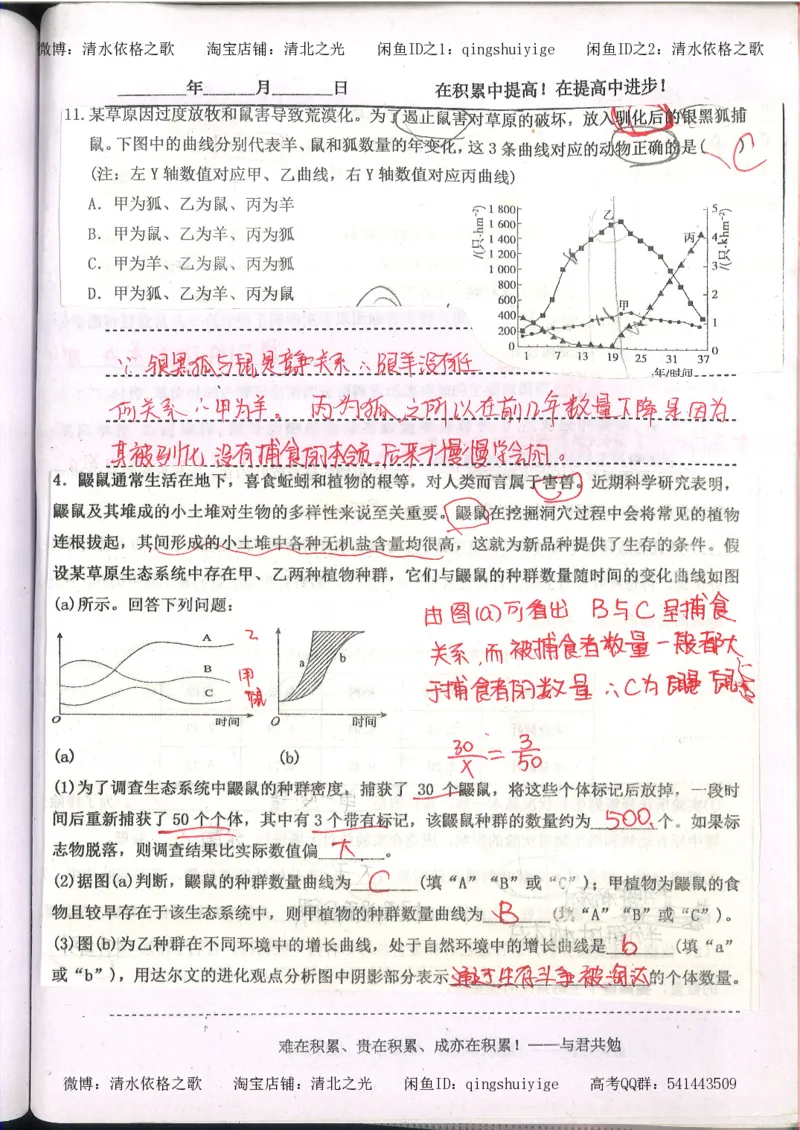 微博：清水依格之歌　　淘宝店铺：清北之光　　闲鱼ID之1：qingshuiyige　　闲鱼ID之2：清水依格之歌
______年______月______日　　在积累中提高！在提高中进步！
11. 某草原因过度放牧和鼠害导致荒漠化。为了遏止鼠害对草原的破坏，放入驯化后的银黑狐捕
鼠。下图中的曲线分别代表羊、鼠和狐数量的年变化，这3条曲线对应的动物正确的是(　　) C
(注：左Y轴数值对应甲、乙曲线，右Y轴数值对应丙曲线)
A．甲为狐、乙为鼠、丙为羊
B．甲为鼠、乙为羊、丙为狐
C．甲为羊、乙为鼠、丙为狐
D．甲为狐、乙为羊、丙为鼠
/(只·hm⁻²)
1 800
1 600
1 400
1 200
1 000
800
600
400
200
0
乙
甲
丙
5
4
3
2
1
0
/(只·khm⁻²)
1 7 13 19 25 31 37
年/时间
∵银黑狐与鼠是竞争关系 ∴跟羊没有任
何关系 ∴甲为羊。 丙为狐，之所以在前12年数量下降是因为
其被驯化，没有捕食的本领，后来才慢慢学会的。
4．鼹鼠通常生活在地下，喜食蚯蚓和植物的根等，对人类而言属于害兽。近期科学研究表明，
鼹鼠及其堆成的小土堆对生物的多样性来说至关重要。鼹鼠在挖掘洞穴过程中会将常见的植物
连根拔起，其间形成的小土堆中各种无机盐含量均很高，这就为新品种提供了生存的条件。假
设某草原生态系统中存在甲、乙两种植物种群，它们与鼹鼠的种群数量随时间的变化曲线如图
(a)所示。回答下列问题：
A 乙
B 甲
C 鼠
O 时间
(a)
a b
O 时间
(b)
由图(a)可看出 B与C呈捕食
关系，而被捕食者数量一般都大
于捕食者的数量 ∴C为鼹鼠
30/X = 3/50
(1)为了调查生态系统中鼹鼠的种群密度，捕获了 30 个鼹鼠，将这些个体标记后放掉，一段时
间后重新捕获了50个个体，其中有3个带有标记，该鼹鼠种群的数量约为 500 个。如果标
志物脱落，则调查结果比实际数值偏 大 。
(2)据图(a)判断，鼹鼠的种群数量曲线为 C (填“A”“B”或“C”)；甲植物为鼹鼠的食
物且较早存在于该生态系统中，则甲植物的种群数量曲线为 B (填“A”“B”或“C”)。
(3)图(b)为乙种群在不同环境中的增长曲线，处于自然环境中的增长曲线是 b (填“a”
或“b”)，用达尔文的进化观点分析图中阴影部分表示 通过生存斗争被淘汰 的个体数量。
难在积累、贵在积累、成亦在积累！——与君共勉
微博：清水依格之歌　　淘宝店铺：清北之光　　闲鱼ID：qingshuiyige　　高考QQ群：541443509